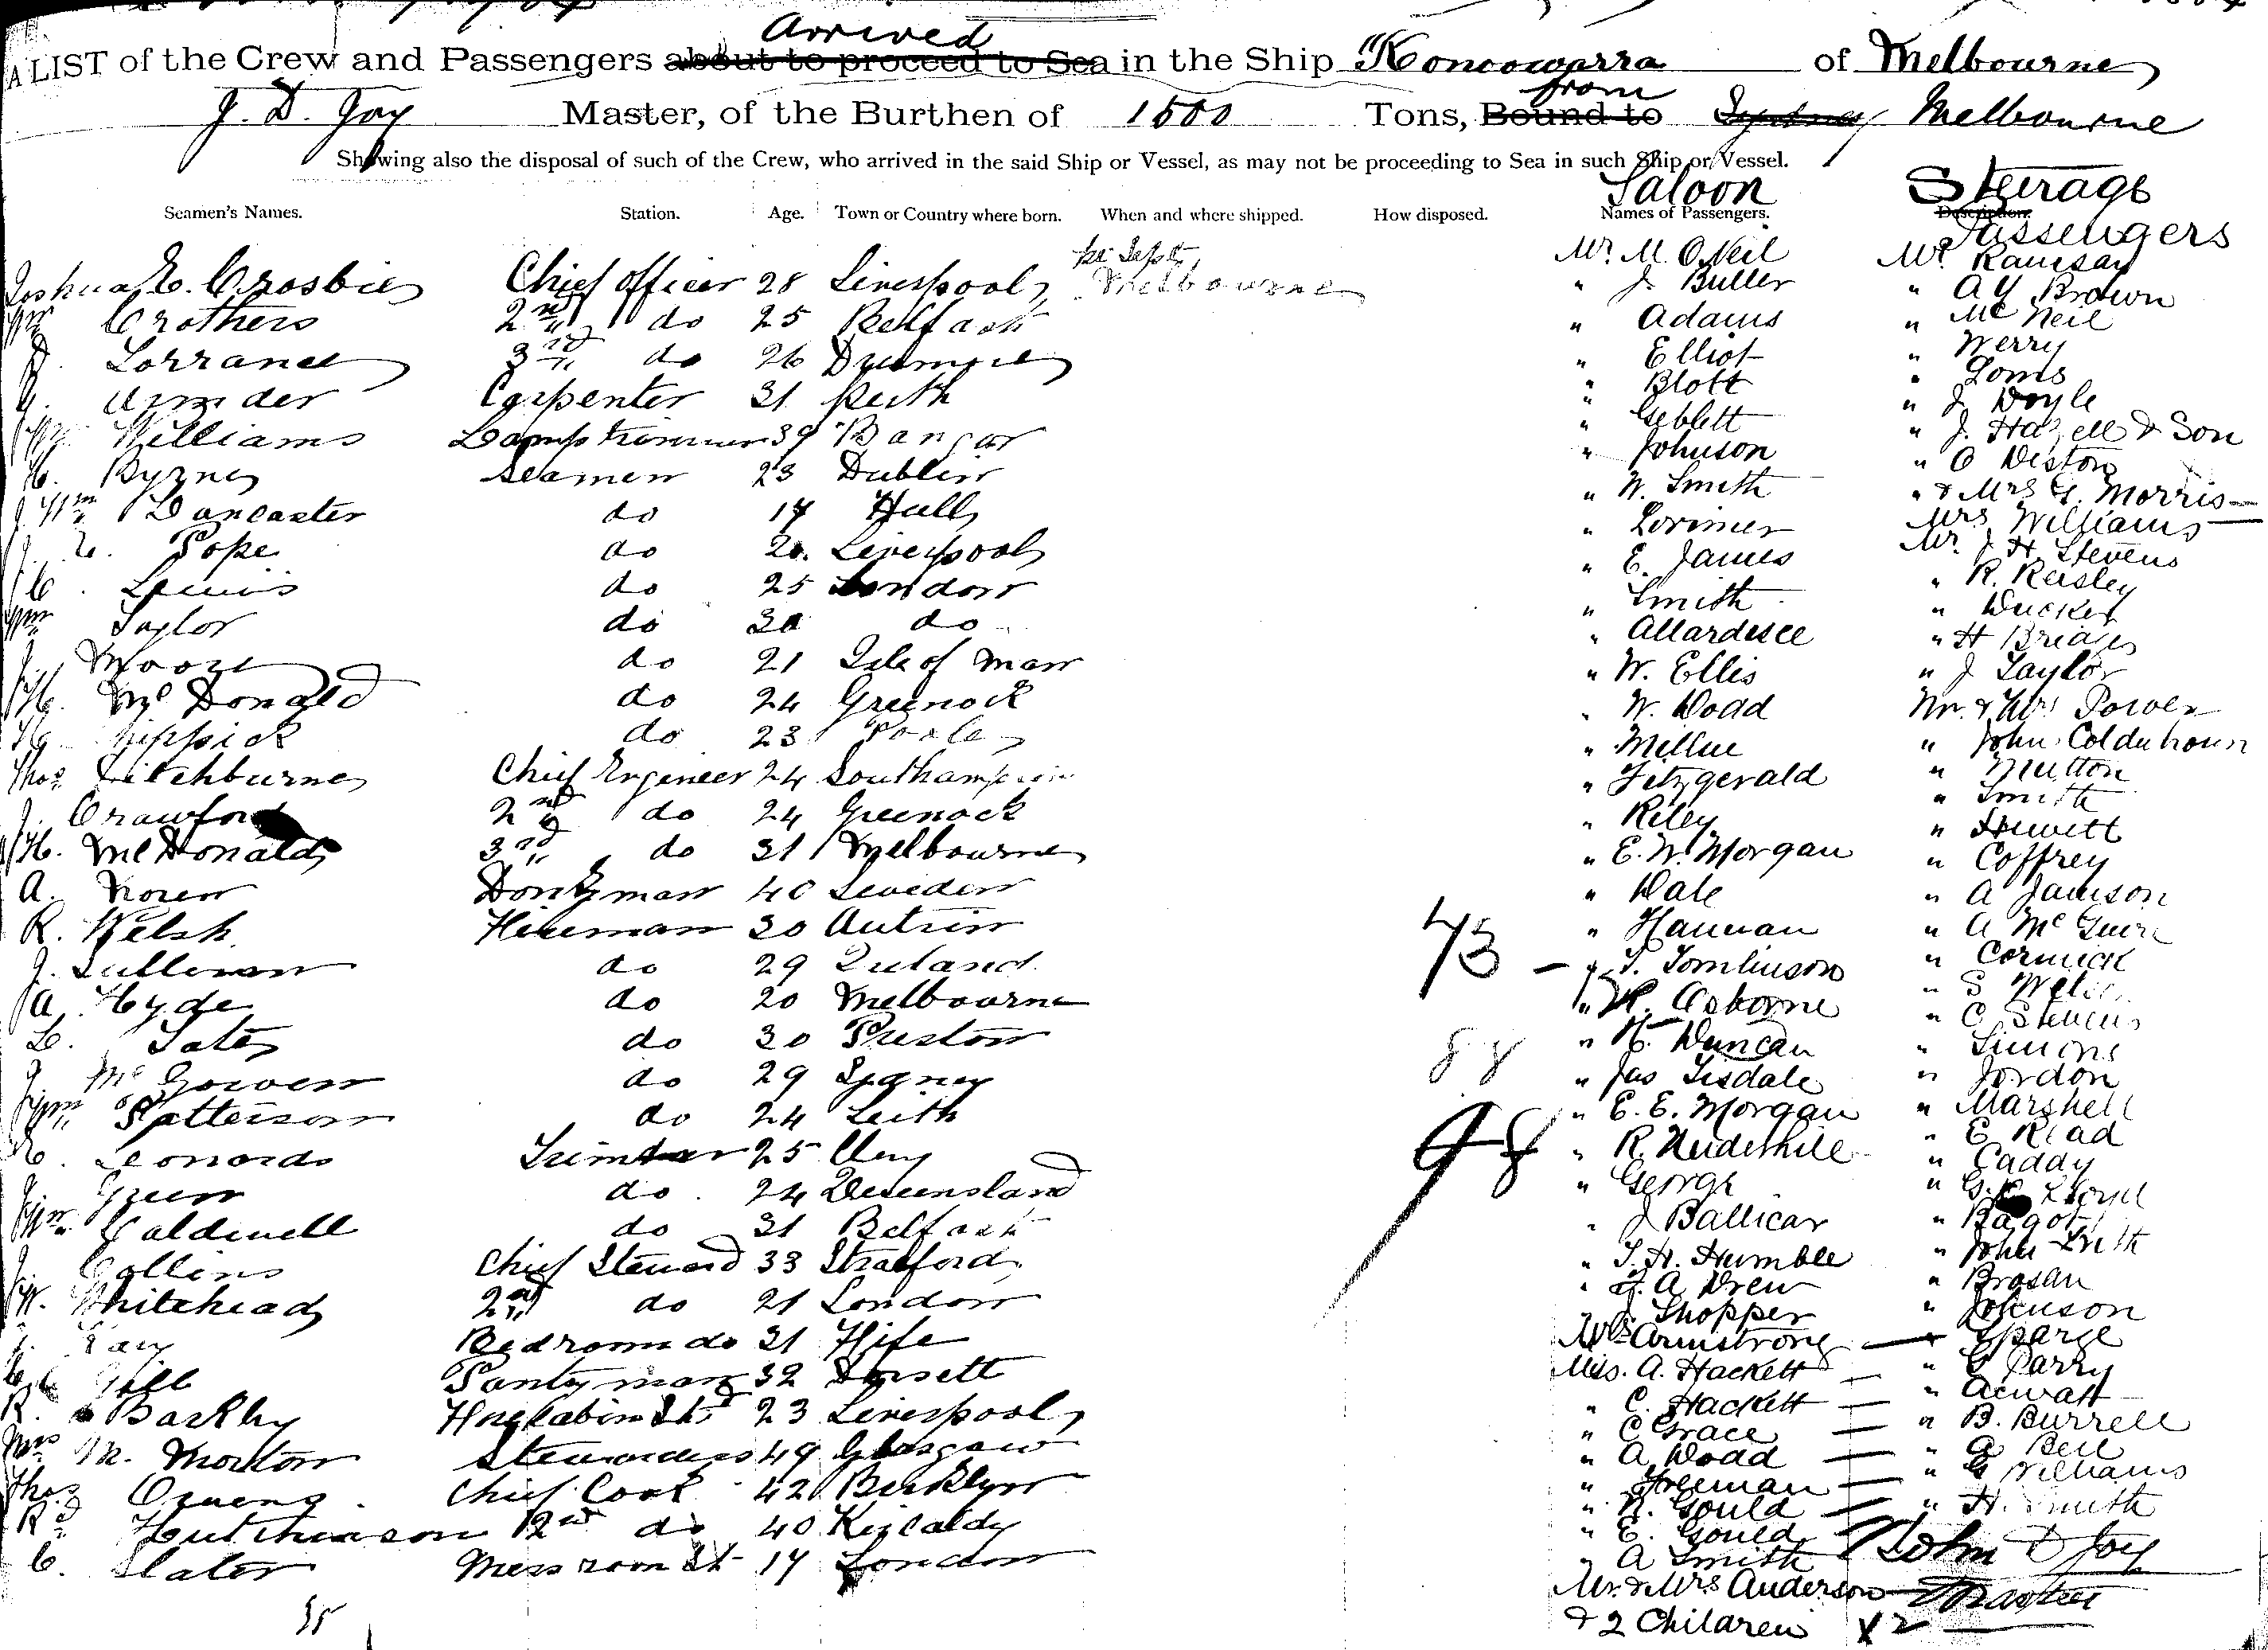 Arrived
A LIST of the Crew and Passengers about to proceed to Sea in the Ship "Konoowarra of Melbourne
from
J. D. Joy Master, of the Burthen of 1500 Tons, Bound to Sydney Melbourne
Showing also the disposal of such of the Crew, who arrived in the said Ship or Vessel, as may not be proceeding to Sea in such Ship or Vessel.
Saloon Steerage
Seamen's Names. Station. Age. Town or Country where born. When and where shipped. How disposed. Names of Passengers. Description.
Passengers
Joshua E. Crosbie Chief officer 28 Liverpool Melbourne
Wm Crothers 2nd do 25 Belfast
Lorrance 3rd do 26
Carpenter 31
Williams Lamptrimmer 39 Bangor
Byrne Seamen 23 Dublin
J. Wm Dancaster do 17 Hull
Pope do 20. Liverpool
Lewis do 25 London
Wm Taylor do 30 do
J. Moore do 21 Isle of Man
H. Mc Donald do 24 Greenock
do 23 Poole
Thos Litchburne Chief Engineer 24 Southampton
J. Crawford 2nd do 24 Greenock
H. McDonald 3rd do 31 Melbourne
A. Noren Donkyman 40 Sweden
R. Welsh Fireman 30 Antrim
J. Sullivan do 29 Ireland
A. Hyde do 20 Melbourne
Tate do 30 Preston
J. Mc Gowen do 29 Sydney
Wm Patterson do 24 Leith
Leonards Trimmer 25
J. Green do 24 Queensland
Wm Caldwell do 31 Belfast
J. Collins Chief Steward 33 Stratford
W. Whitehead 2nd do 21 London
Bedroom do 31 Fife
Gill Pantryman 32 Dorsett
R. Barkly Forecabin Std 23 Liverpool
Mrs M. Morton Stewardess 49 Glasgow
Thos Owens Chief Cook 42 Brooklyn
Rd Hutchinson 2nd do 40 Kircaldy
C. Slater Messroom St 17 London
Mr. M. O'Neil
" J. Buller
" Adams
" Elliot
" Blott
" Geblett
" Johnson
" W. Smith
" Lorimer
" E. James
" Smith
" Allardice
" W. Ellis
" W. Dodd
" Mellue
" Fitzgerald
" Riley
" E. W. Morgan
" Dale
" Hannan
73 - " T. Tomlinson
" Osborne
88 " Duncan
" Jas Tisdale
" E. E. Morgan
98 " R. Underhile
" George
" J Ballicar
" T. H. Humble
" A Drew
" Shopper
Mrs Armstrong
Miss. A. Hackett
" C. Hackett
" C Grace
" A Dodd
" Freeman
" R. Gould
" E. Gould
" A Smith
Mr. & Mrs Anderson
& 2 Children x 2
Mr. Ramsay
" A Y Brown
" Mc Neil
" Werry
" Loms
" J Doyle
" J. Hazell & Son
" O Diston
" & Mrs G. Morris
Mrs Williams
Mr. J H. Stevens
" R. Reisley
" Ducket
" H Bridges
" J Taylor
Mr. & Mrs Power
" John Colduhoun
" Mutton
" Smith
" Hewett
" Coffrey
" A Jamison
" A McGuire
" Cormick
" S
" C Stevens
" Simons
" Jordon
" Marshell
" E Read
" Caddy
" Lloyd
" Bagot
" John Smith
" Brosan
" Johnson
" Sparge
" Parry
" Acwatt
" B. Burrell
" Bell
" G Williams
" H. Smith
John D Joy
Master